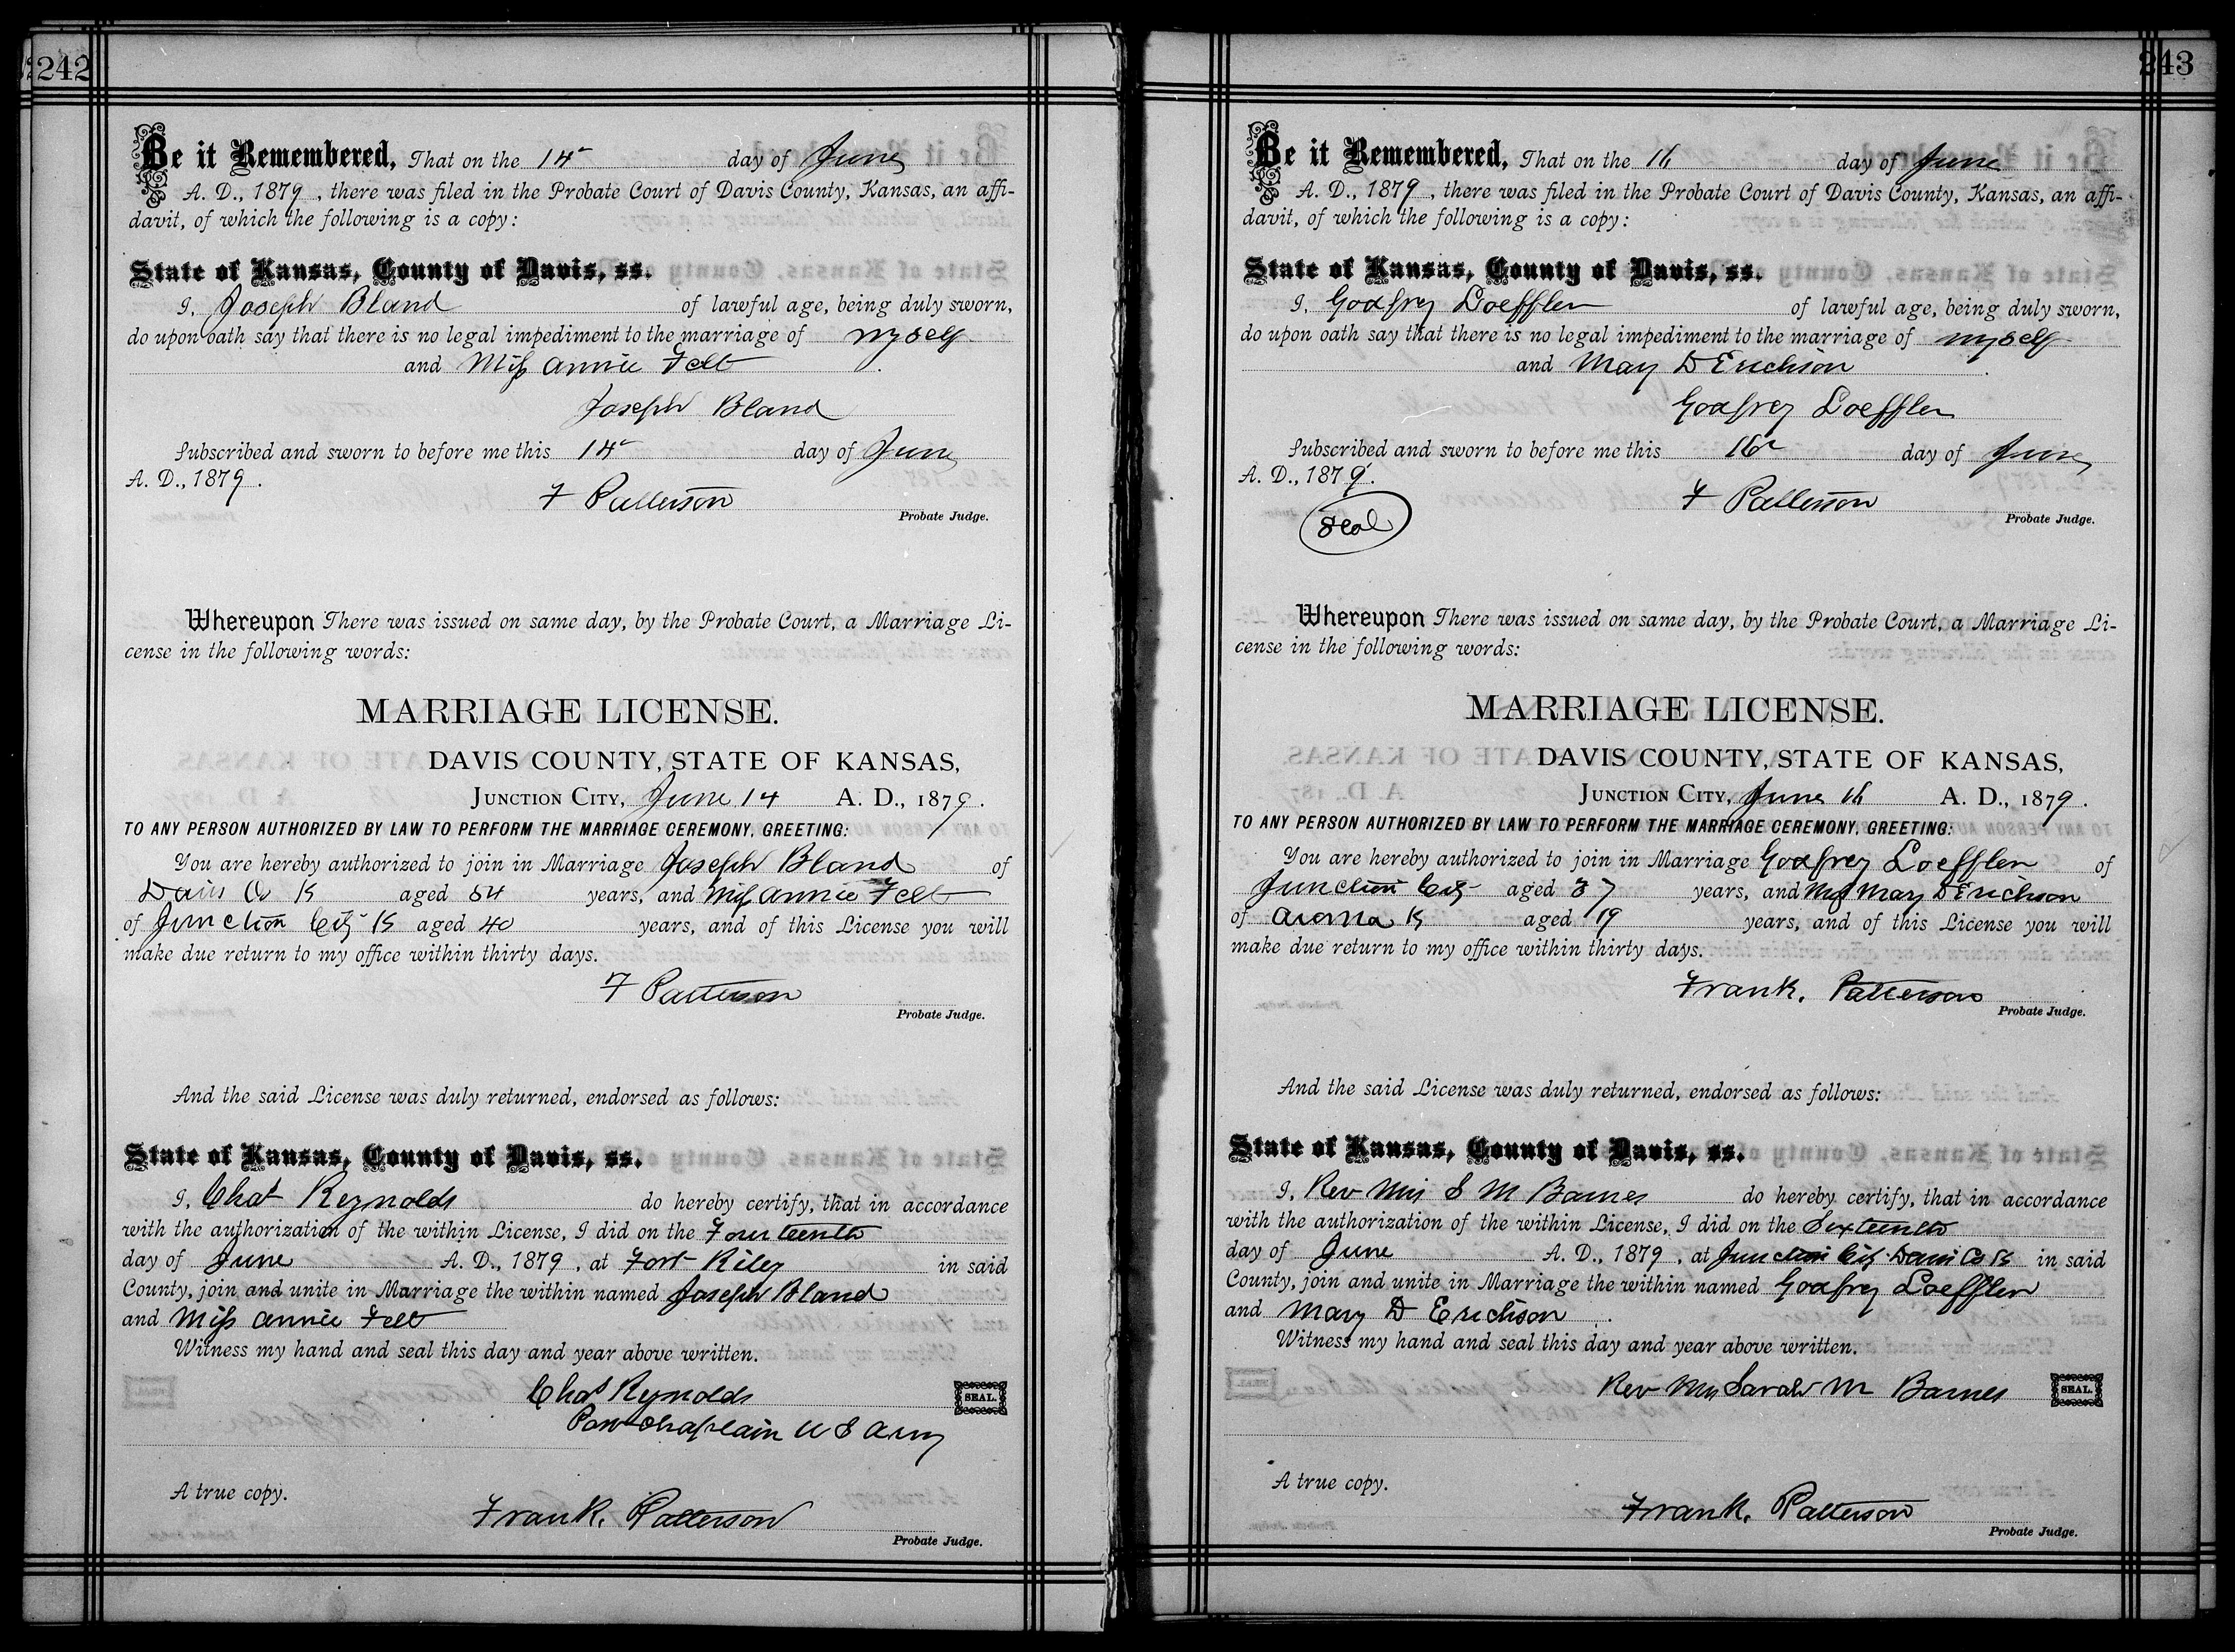 242
Be it Remembered, That on the 14" day of June
A. D., 1879, there was filed in the Probate Court of Davis County, Kansas, an affi-
davit, of which the following is a copy:
State of Kansas, County of Davis, ss.
I, Joseph Bland of lawful age, being duly sworn,
do upon oath say that there is no legal impediment to the marriage of myself
and Miss Annie Felt
Joseph Bland
Subscribed and sworn to before me this 14" day of June
A. D., 1879.
F Patterson
Probate Judge.
Whereupon There was issued on same day, by the Probate Court, a Marriage Li-
cense in the following words:
MARRIAGE LICENSE.
DAVIS COUNTY, STATE OF KANSAS,
JUNCTION CITY, June 14 A. D., 1879.
TO ANY PERSON AUTHORIZED BY LAW TO PERFORM THE MARRIAGE CEREMONY, GREETING:
You are hereby authorized to join in Marriage Joseph Bland of
Davis Co K aged 54 years, and Miss Annie Felt
of Junction City K aged 40 years, and of this License you will
make due return to my office within thirty days.
F Patterson
Probate Judge.
And the said License was duly returned, endorsed as follows:
State of Kansas, County of Davis, ss.
I, Chas Reynolds do hereby certify, that in accordance
with the authorization of the within License, I did on the Fourteenth
day of June A. D., 1879, at Fort Riley in said
County, join and unite in Marriage the within named Joseph Bland
and Miss Annie Felt
Witness my hand and seal this day and year above written.
Chas Reynolds SEAL.
Post Chaplain U S Army
A true copy.
Frank. Patterson
Probate Judge.
243
Be it Remembered, That on the 16 day of June
A. D., 1879, there was filed in the Probate Court of Davis County, Kansas, an affi-
davit, of which the following is a copy:
State of Kansas, County of Davis, ss.
I, Godfrey Loeffler of lawful age, being duly sworn,
do upon oath say that there is no legal impediment to the marriage of myself
and Mary D Erichson
Godfrey Loeffler
Subscribed and sworn to before me this 16" day of June
A. D., 1879.
F Patterson
Probate Judge.
Seal
Whereupon There was issued on same day, by the Probate Court, a Marriage Li-
cense in the following words:
MARRIAGE LICENSE.
DAVIS COUNTY, STATE OF KANSAS,
JUNCTION CITY, June 16 A. D., 1879.
TO ANY PERSON AUTHORIZED BY LAW TO PERFORM THE MARRIAGE CEREMONY, GREETING:
You are hereby authorized to join in Marriage Godfrey Loeffler of
Junction City aged 37 years, and Miss Mary D Erichson
of Aroma K aged 19 years, and of this License you will
make due return to my office within thirty days.
Frank. Patterson
Probate Judge.
And the said License was duly returned, endorsed as follows:
State of Kansas, County of Davis, ss.
I, Rev Mrs S M Barnes do hereby certify, that in accordance
with the authorization of the within License, I did on the Sixteenth
day of June A. D., 1879, at Junction City Davis Co K in said
County, join and unite in Marriage the within named Godfrey Loeffler
and Mary D Erichson.
Witness my hand and seal this day and year above written.
Rev Mrs Sarah M Barnes SEAL.
A true copy.
Frank. Patterson
Probate Judge.